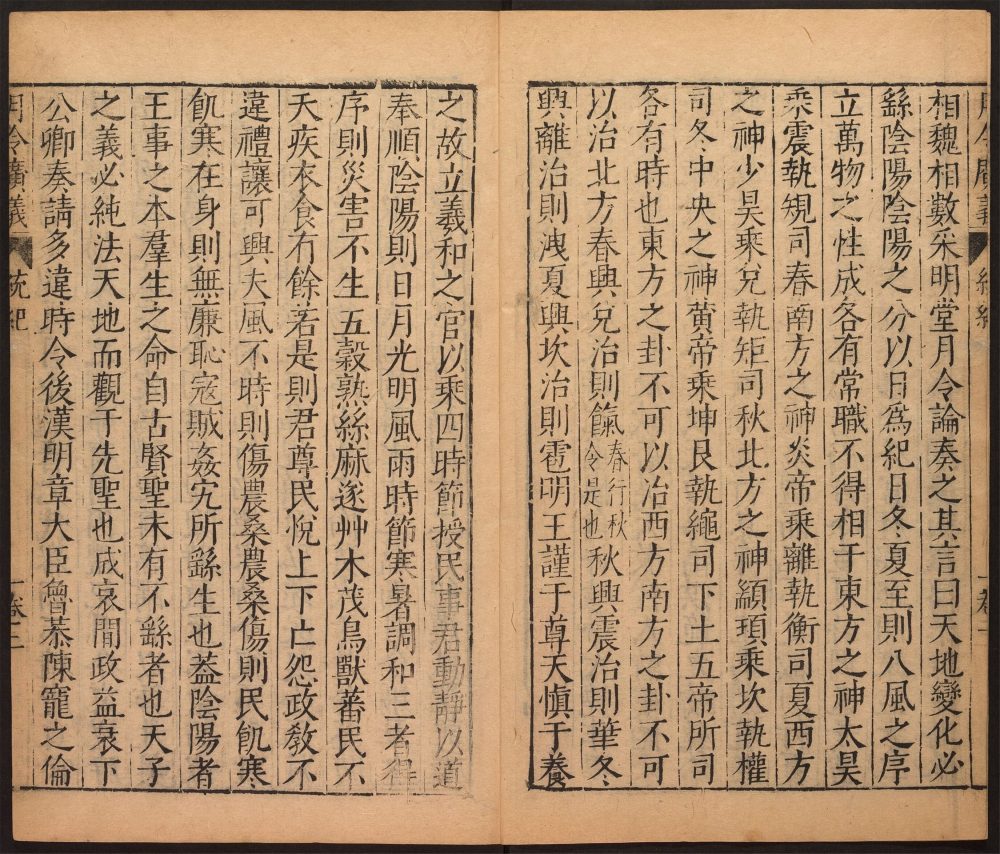 相魏相數采明堂月令論奏之其言曰天地變化必
繇陰陽陰陽之分以日爲紀日冬夏至則八風之序
立萬物之性成各有常職不得相干東方之神太昊
乘震執規司春南方之神炎帝乘離執衡司夏西方
之神少昊乘兌執矩司秋北方之神顓頊乘坎執權
司冬中央之神黄帝乘坤艮執繩司下土五帝所司
各有時也東方之卦不可以治西方南方之卦不可
以治北方春興兌治則饑春行秋令是也秋興震治則華冬
興離治則洩夏興坎治則雹明王謹于尊天慎于養
之故立羲和之官以乘四時節授民事君動靜以道
奉順陰陽則日月光明風雨時節寒暑調和三者得
序則災害不生五穀熟絲麻遂艸木茂鳥獸蕃民不
夭疾衣食有餘若是則君尊民悅上下亡怨政敎不
違禮讓可興夫風不時則傷農桑農桑傷則民飢寒
飢寒在身則無廉恥寇賊姦宄所繇生也葢陰陽者
王事之本羣生之命自古賢聖未有不繇者也天子
之義必純法天地而觀于先聖也成哀閒政益衰下
公卿奏請多違時令後漢明章大臣魯恭陳寵之倫
月令廣義 統紀 卷二